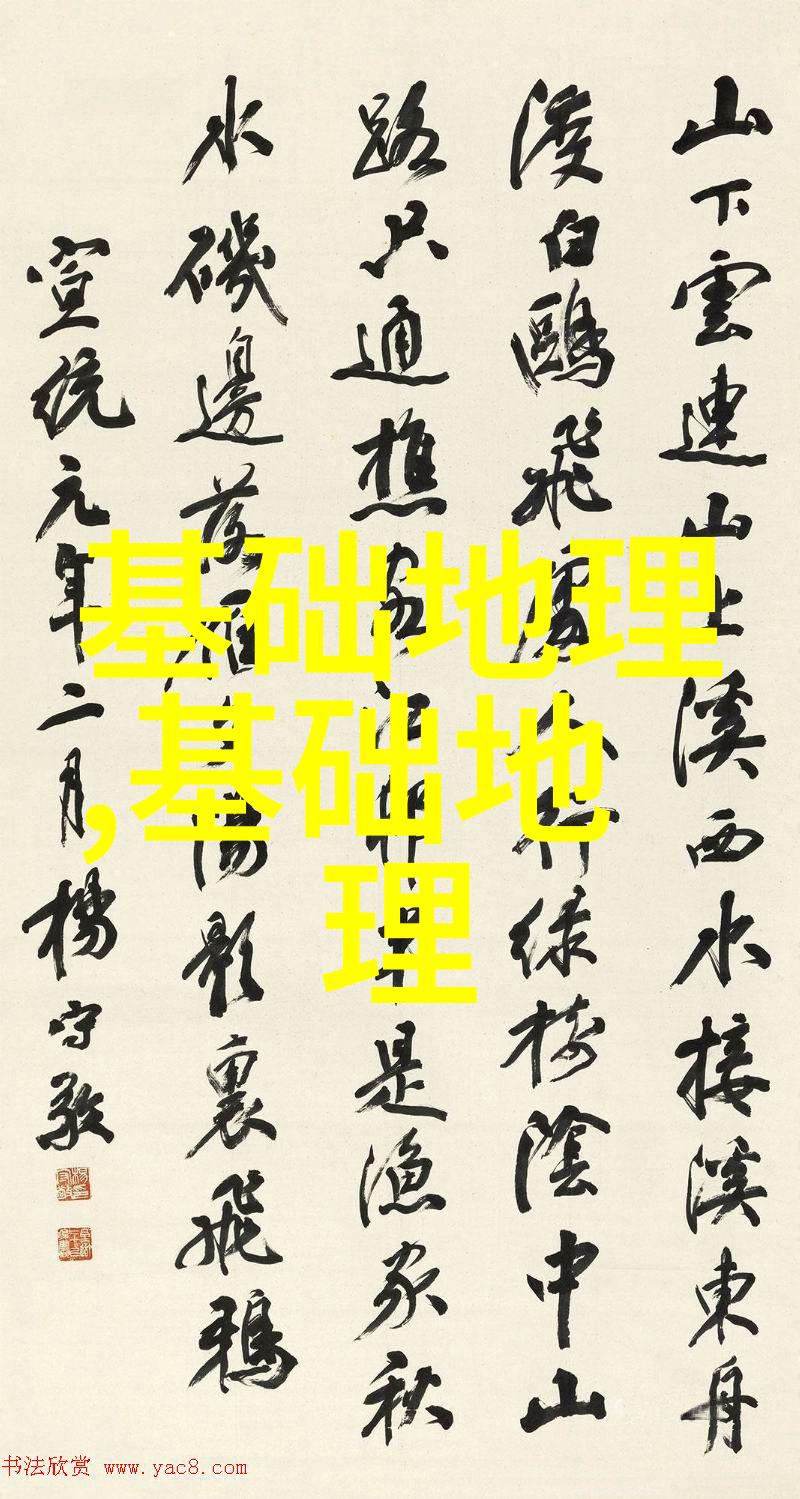 山下雲連山上溪西水接溪東舟
渡白鷗飛處人行綠樹陰中山
路只通樵客江邨是漁家秋
水磯邊落雁陽影裏飛鴉
宣統元年二月楊守敬
基础地理
,基础地
理
书法欣赏 www.yac8.com